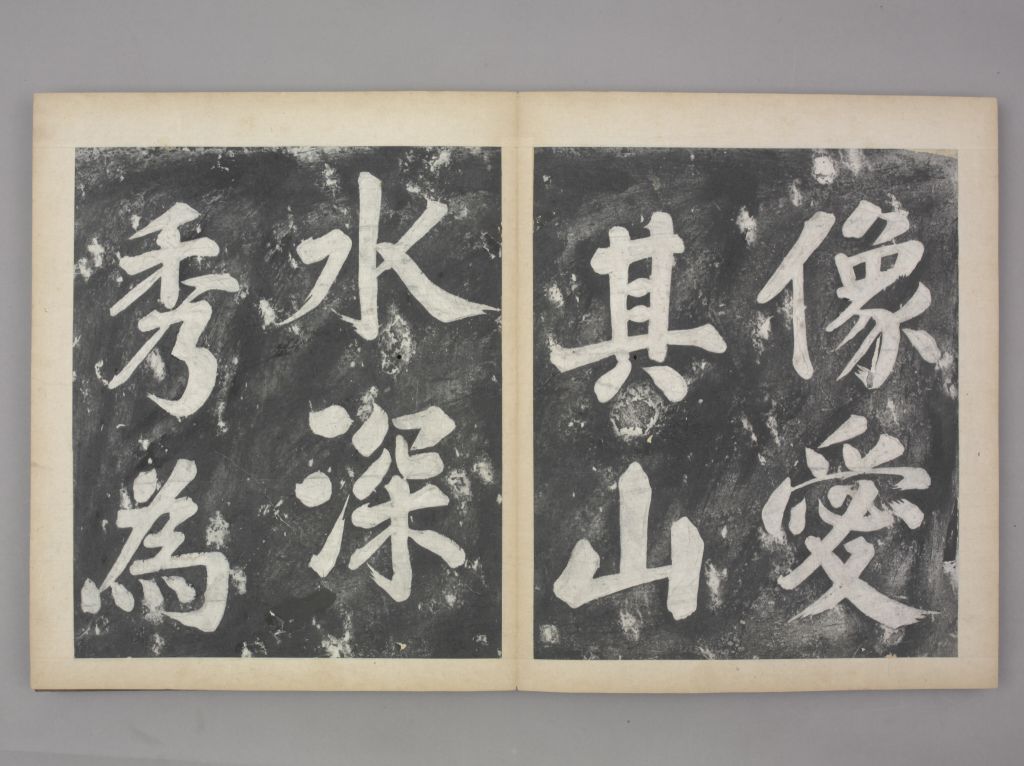 像愛
其山
水深
秀為